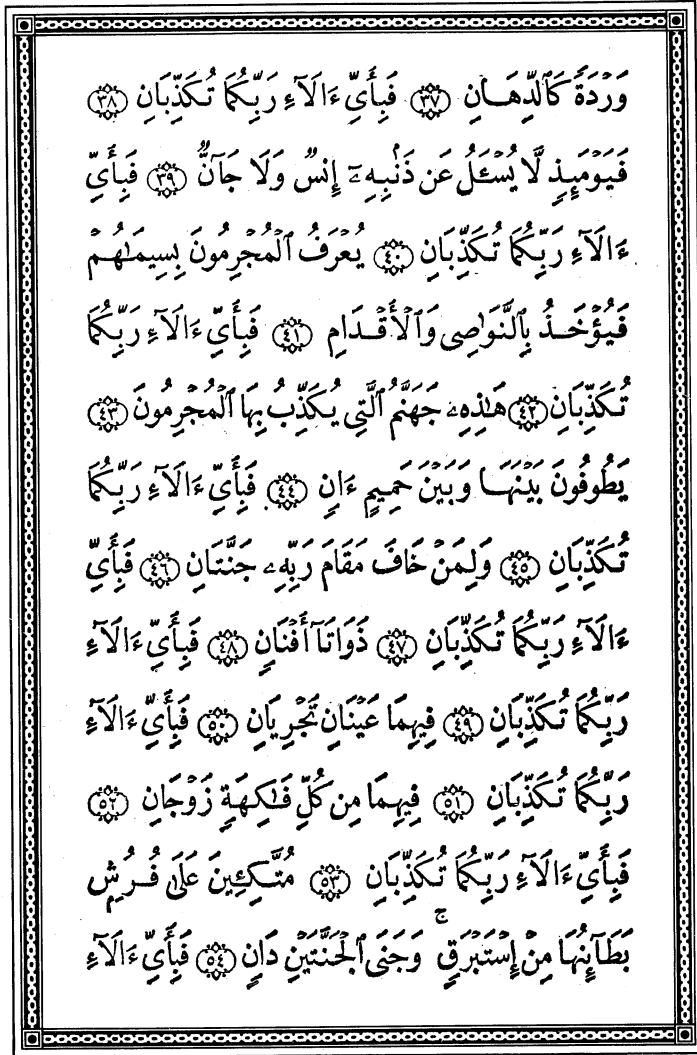 وَرۡدَةٗ كَٱلدِّهَـانِ ٣٧ فَبِأَيِّ ءَالَآءِ رَبِّكُمَا تُكَذِّبَانِ ٣٨
فَيَوۡمَئِذٖ لَّا يُسۡـَٔلُ عَن ذَنۢبِهِۦٓ إِنسٞ وَلَا جَآنّٞ ٣٩ فَبِأَيِّ
ءَالَآءِ رَبِّكُمَا تُكَذِّبَانِ ٤٠ يُعۡرَفُ ٱلۡمُجۡرِمُونَ بِسِيمَٰهُمۡ
فَيُؤۡخَـذُ بِٱلنَّوَٰصِي وَٱلۡأَقۡـدَامِ ٤١ فَبِأَيِّ ءَالَآءِ رَبِّكُمَا
تُكَذِّبَانِ ٤٢ هَٰذِهِۦ جَهَنَّمُ ٱلَّتِي يُكَذِّبُ بِهَا ٱلۡمُجۡرِمُونَ ٤٣
يَطُوفُونَ بَيۡنَهَـا وَبَيۡنَ حَمِيمٍ ءَانٖ ٤٤ فَبِأَيِّ ءَالَآءِ رَبِّكُمَا
تُكَذِّبَانِ ٤٥ وَلِمَنۡ خَافَ مَقَامَ رَبِّهِۦ جَنَّتَانِ ٤٦ فَبِأَيِّ
ءَالَآءِ رَبِّكُمَا تُكَذِّبَانِ ٤٧ ذَوَاتَآ أَفۡنَانٖ ٤٨ فَبِأَيِّ ءَالَآءِ
رَبِّكُمَا تُكَذِّبَانِ ٤٩ فِيهِمَا عَيۡنَانِ تَجۡرِيَانِ ٥٠ فَبِأَيِّ ءَالَآءِ
رَبِّكُمَا تُكَذِّبَانِ ٥١ فِيهِمَا مِن كُلِّ فَٰكِهَةٖ زَوۡجَانِ ٥٢
فَبِأَيِّ ءَالَآءِ رَبِّكُمَا تُكَذِّبَانِ ٥٣ مُتَّكِـِٔينَ عَلَىٰ فُـرُشِۭ
بَطَآئِنُهَا مِنۡ إِسۡتَبۡرَقٖۚ وَجَنَى ٱلۡجَنَّتَيۡنِ دَانٖ ٥٤ فَبِأَيِّ ءَالَآءِ